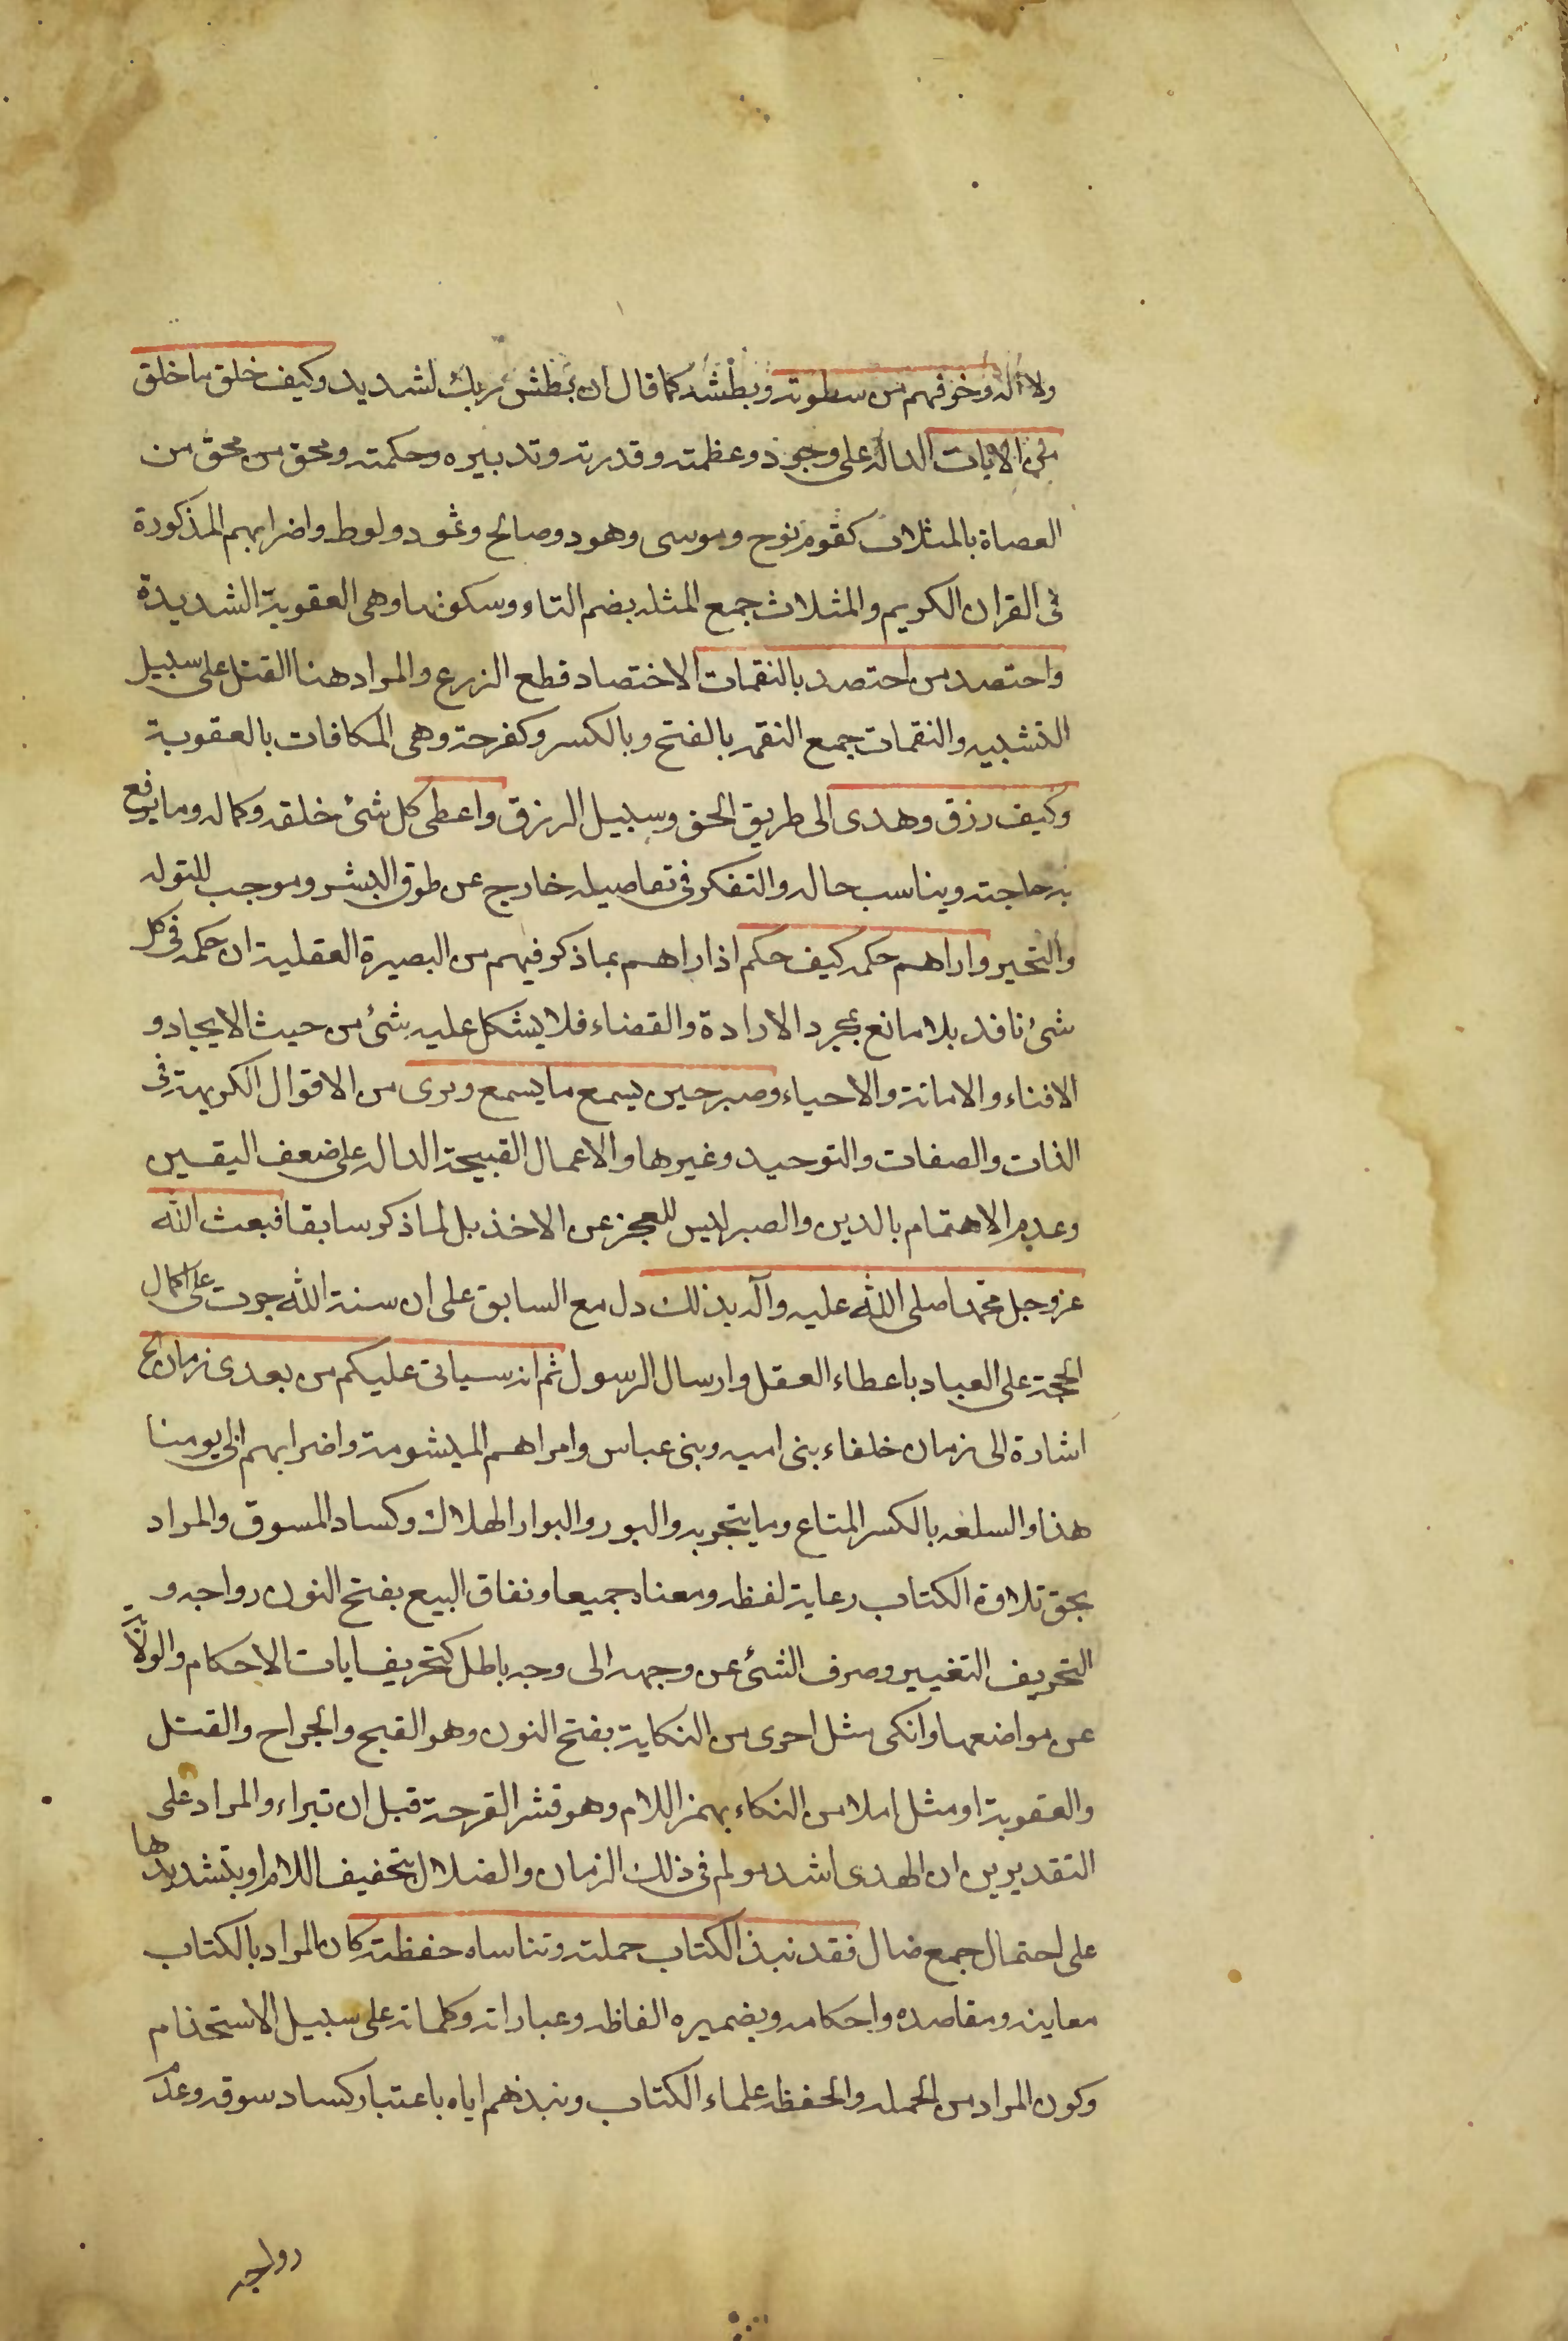 ولا اله وخوفهم من سطوته وبطشه كما قال ان بطش ربك لشديد وكيف خلق ما خلق
من الايات الداله على وجوده وعظمته وقدرته وتدبيره وحكمته ومحق من محق من
العصاة بالمثلات كقوم نوح وموسى وهود وصالح وثمود ولوط واضرابهم المذكورة
فى القران الكريم والمثلاث جمع المثله بضم التاء وسكونها وهى العقوبة الشديدة
واحتصد من احتصد بالنقمات الاختصاد قطع الزرع والمراد هنا القتل على سبيل
التشبيه والنقمات جمع النقمه بالفتح وبالكسر وكفرحة وهى المكافات بالعقوبة
وكيف رزق وهدى الى طريق الحق وسبيل الرزق واعطى كل شئ خلقه وكماله وما يرفع
به حاجته ويناسب حاله والتفكر فى تفاصيله خارج عن طوق البشر وموجب للتوله
والتحير واراهم حكمه كيف حكم اذ اراهم بما ذكر فيهم من البصيرة العقلية ان حكمه فى كل
شئ نافد بلا مانع بمجرد الارادة والقضاء فلا يشكل عليه شئ من حيث الايجاد و
الافناء والاماتة والاحياء وصبر حين يسمع ما يسمع ويرى من الاقوال الكريهة فى
الذات والصفات والتوحيد وغيرها والاعمال القبيحة الداله على ضعف اليقين
وعدم الاهتمام بالدين والصبر ليس للعجز عن الاخذ بل لما ذكر سابقا فبعث الله
عز وجل محمدا صلى الله عليه وآله بذلك دل مع السابق على ان سنة الله جرت على اكمال
الحجة على العباد باعطاء العقل وارسال الرسول ثم انه سياتى عليكم من بعدى زمان الخ
اشارة الى زمان خلفاء بنى اميه وبنى عباس وامراهم الميشومة واضرابهم الى يومنا
هذا والسلعه بالكسر المتاع وما يتجر به والبور والبوار الهلاك وكساد المسوق والمراد
بحق تلاوة الكتاب رعاية لفظه ومعناه جميعا ونفاق البيع بفتح النون رواجه و
التحريف التغيير وصرف الشئ عن وجهه الى وجه باطل كتحريف ايات الاحكام والولاية
عن مواضعها وانكى مثل احرى من النكاية بفتح النون وهو القبح والجراح والقتل
والعقوبة او مثل املا من النكاء بهمز اللام وهو قشر القرحة قبل ان تبراء والمراد على
التقديرين ان الهدى اشد مولم فى ذلك الزمان والضلال بتخفيف اللام او بتشديدها
على احتمال جمع ضال فقد نبذ الكتاب حملته وتناساه حفظته كان المراد بالكتاب
معاينه ومقاصده واحكامه وبضميره الفاظه وعباراته وكلماته على سبيل الاستخذام
وكون المراد من الحمله والحفظه علماء الكتاب ونبذهم اياه باعتبار كساد سوقه وعدم
رواجه